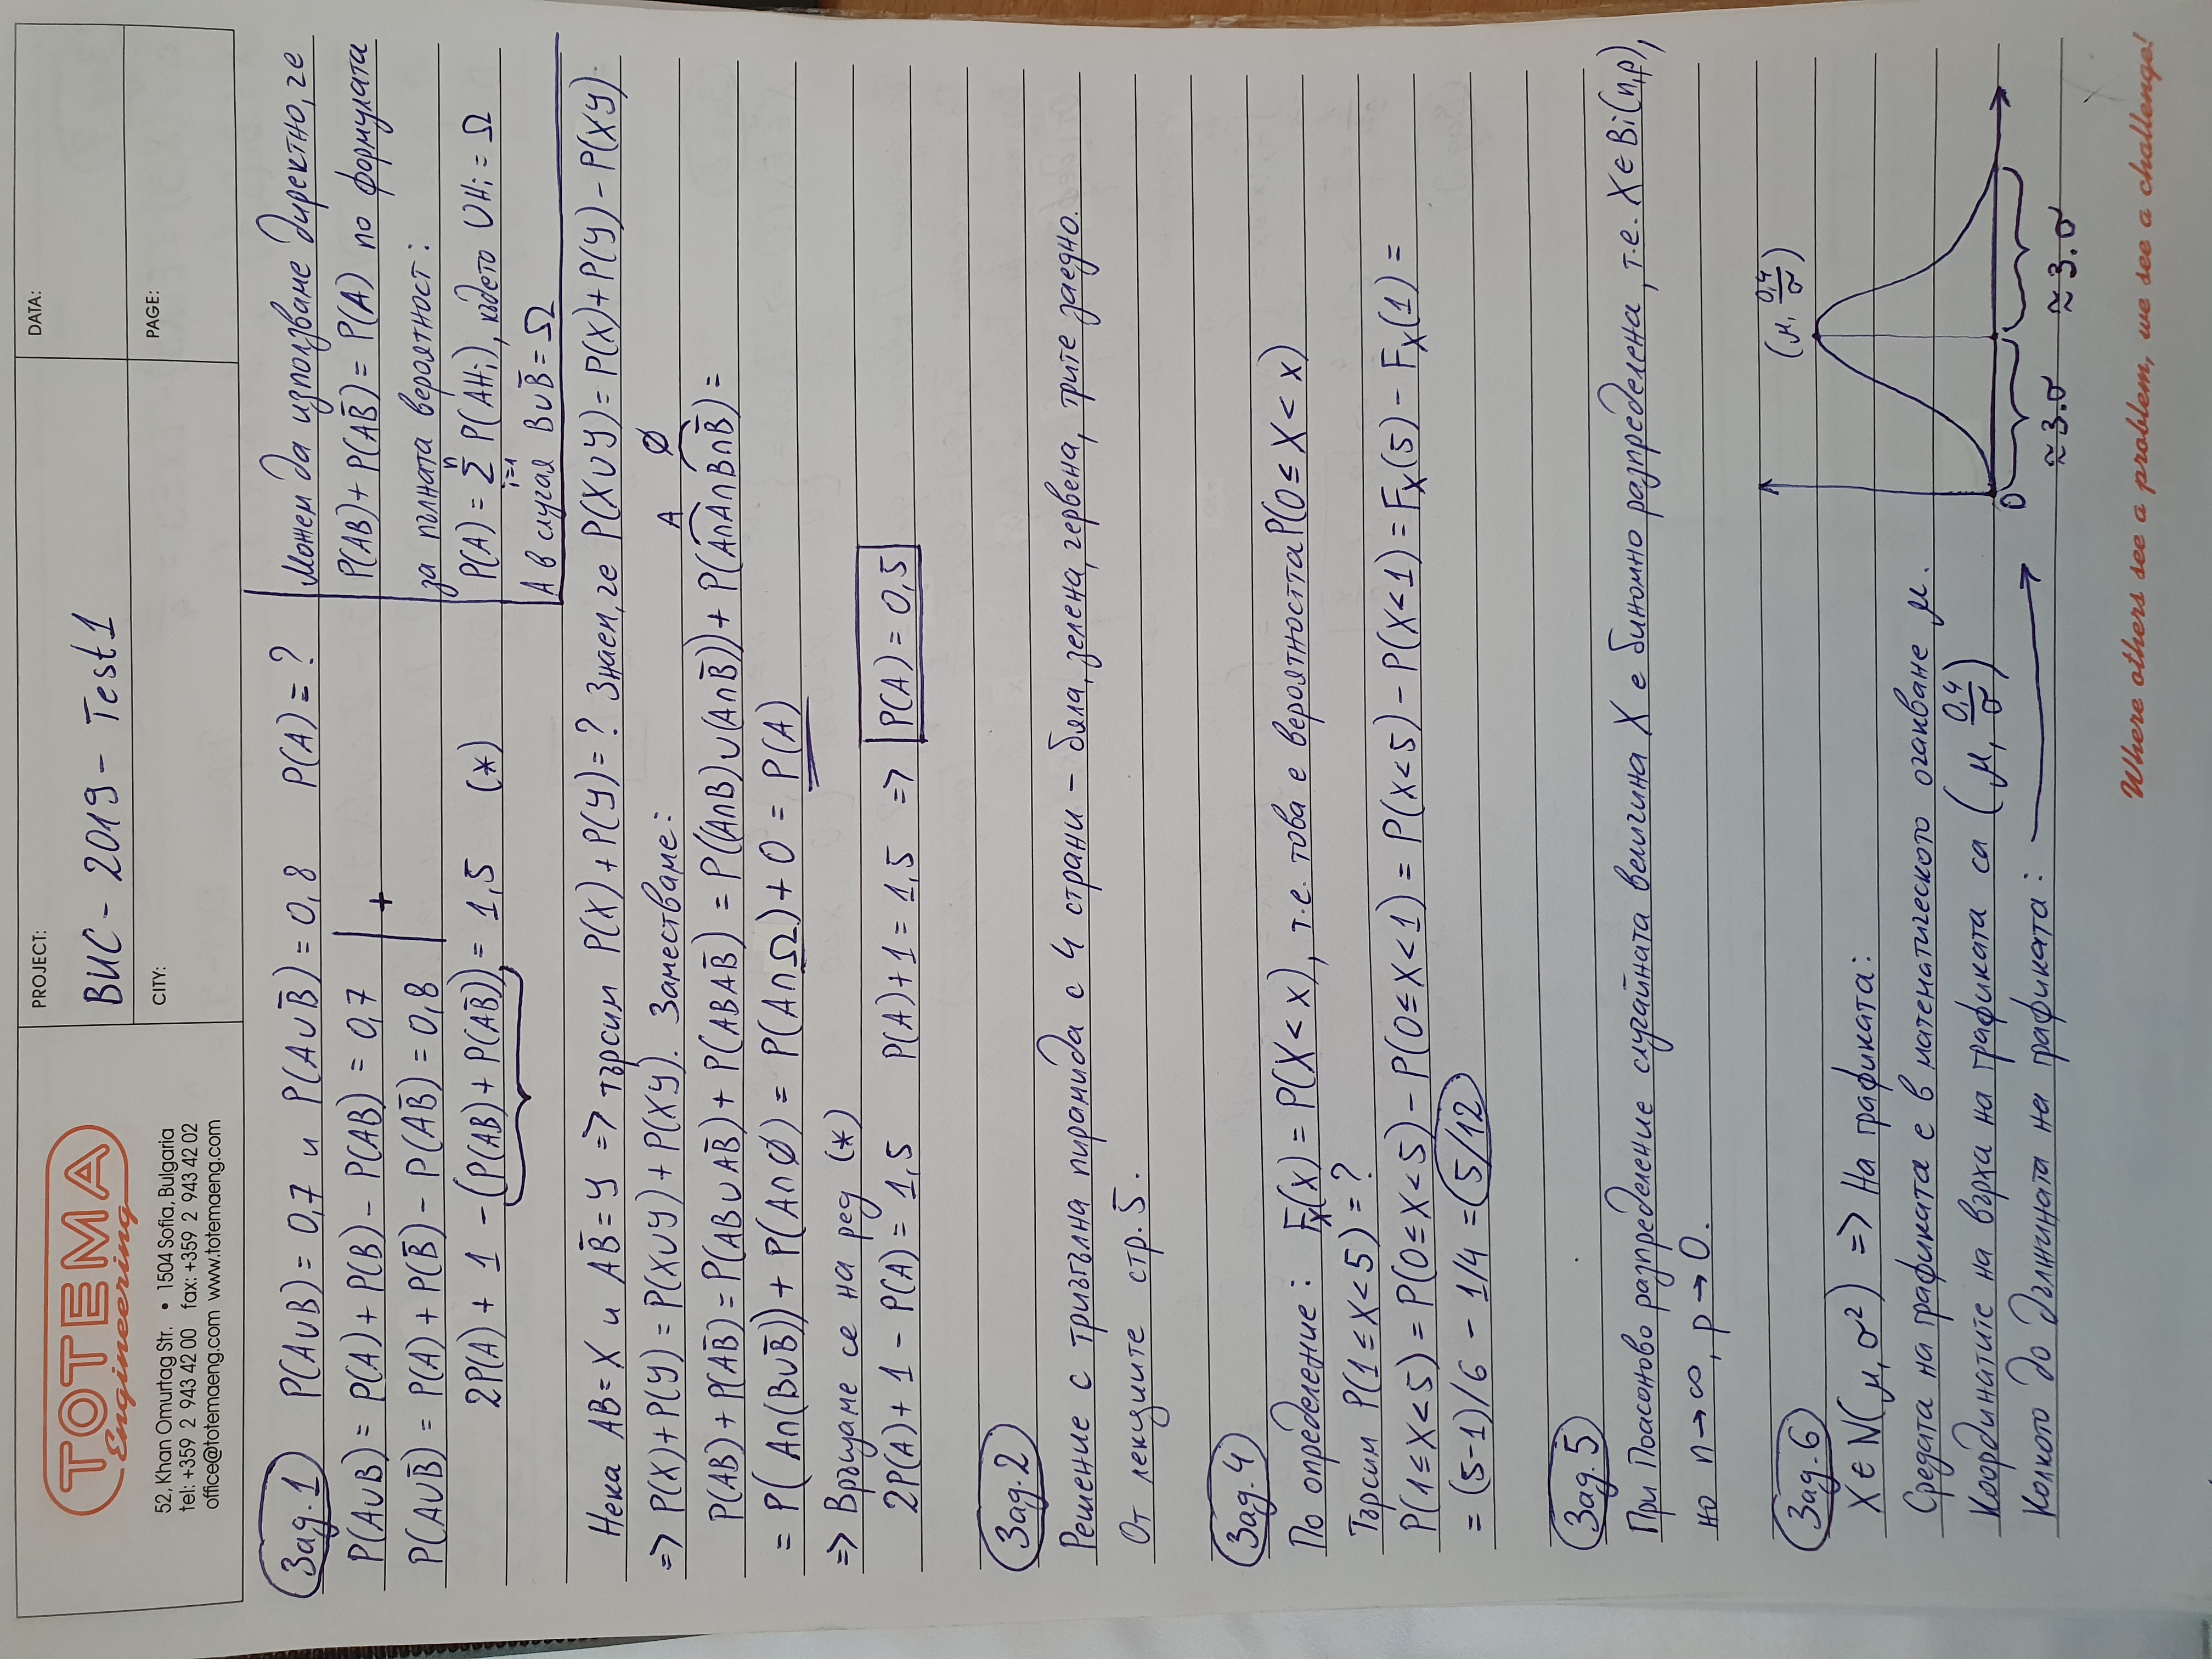 TOTEMA
Engineering
52, Khan Omurtag Str. • 1504 Sofia, Bulgaria
tel: +359 2 943 42 00 fax: +359 2 943 42 02
office@totemaeng.com www.totemaeng.com
PROJECT:
ВИС - 2019 - Test1
CITY:
DATA:
PAGE:
Зад. 1 P(A∪B) = 0,7 и P(A∪B̄) = 0,8 P(A) = ?
P(A∪B) = P(A) + P(B) - P(AB) = 0,7
+
P(A∪B̄) = P(A) + P(B̄) - P(AB̄) = 0,8
2P(A) + 1 - (P(AB) + P(AB̄)) = 1,5 (*)
Можем да използваме директно, че
P(AB) + P(AB̄) = P(A) по формулата
за пълната вероятност:
P(A) = Σ P(AHi), където ∪Hi = Ω
n
i=1
А в случая B∪B̄ = Ω
Нека AB = X и AB̄ = Y => търсим P(X) + P(Y) = ? Знаем, че P(X∪Y) = P(X) + P(Y) - P(XY)
=> P(X) + P(Y) = P(X∪Y) + P(XY). Заместваме:
A ∅
P(AB) + P(AB̄) = P(AB∪AB̄) + P(ABAB̄) = P((A∩B)∪(A∩B̄)) + P(A∩A∩B∩B̄) =
= P(A∩(B∪B̄)) + P(A∩∅) = P(A∩Ω) + 0 = P(A)
=> Връщаме се на ред (*)
2P(A) + 1 - P(A) = 1,5 P(A) + 1 = 1,5 => P(A) = 0,5
Зад. 2
Решение с триъгълна пирамида с 4 страни - бяла, зелена, червена, трите заедно.
От лекциите стр. 5.
Зад. 4
По определение: Fx(x) = P(X < x), т.е. това е вероятността P(0 ≤ X < x)
Търсим P(1 ≤ X < 5) = ?
P(1 ≤ X < 5) = P(0 ≤ X < 5) - P(0 ≤ X < 1) = P(X < 5) - P(X < 1) = Fx(5) - Fx(1) =
= (5-1)/6 - 1/4 = 5/12
Зад. 5
При Поасоново разпределение случайната величина X е биномно разпределена, т.е. X ∈ Bi(n,p),
но n → ∞, p → 0.
Зад. 6
X ∈ N(μ, σ²) => На графиката:
Средата на графиката е в математическото очакване μ.
Координатите на върха на графиката са (μ, 0,4/σ)
Колкото до дължината на графиката:
(μ, 0,4/σ)
0
≈ 3.σ ≈ 3.σ
Where others see a problem, we see a challenge!